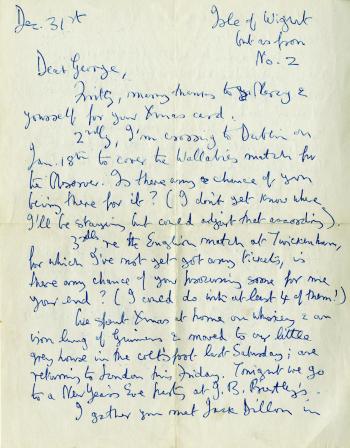 Dec. 31st
Isle of Wight
but as from
No. 2
Dear George,
Firstly, many thanks to Mercy &
yourself for your Xmas card.
2ndly, I'm crossing to Dublin on
Jan. 18th to cover the Wallabies match for
the Observer. Is there any chance of your
being there for it? (I don't yet know where
I'll be staying but could adjust that according).
3rdly re the English match at Twickenham,
for which I've not yet got any tickets, is
there any chance of your procuring some for me
your end? (I could do with at least 4 of them!)
We spent Xmas at home on whiskey & an
iron lung of Guinness & moved to our little
grey house in the last Saturday; are
returning to London this Friday. Tonight we go
to a New Year's Eve party at J.B. Priestley's.
I gather you met Jack Dillon in